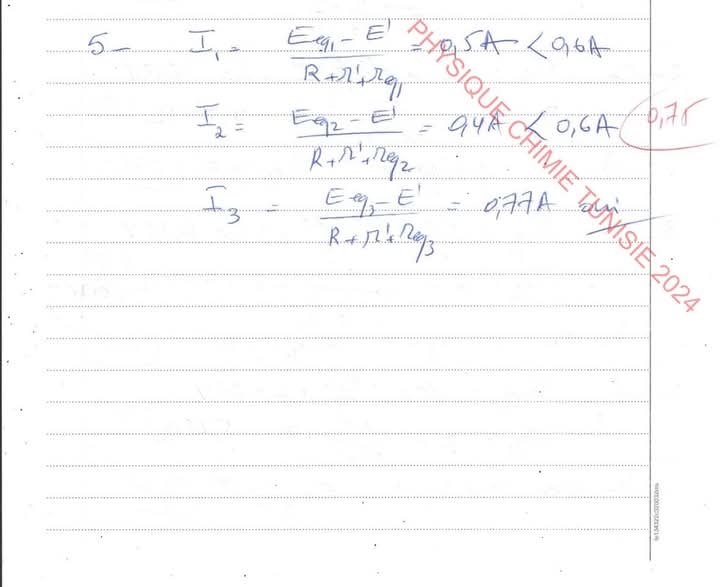 5 - I₁ = (Eeq₁ - E') / (R + r' + req₁) = 0,5A < 0,6A
I₂ = (Eeq₂ - E') / (R + r' + req₂) = 0,4A < 0,6A 0,75
I₃ = (Eeq₃ - E') / (R + r' + req₃) = 0,77A oui
PHYSIQUE CHIMIE TUNISIE 2024